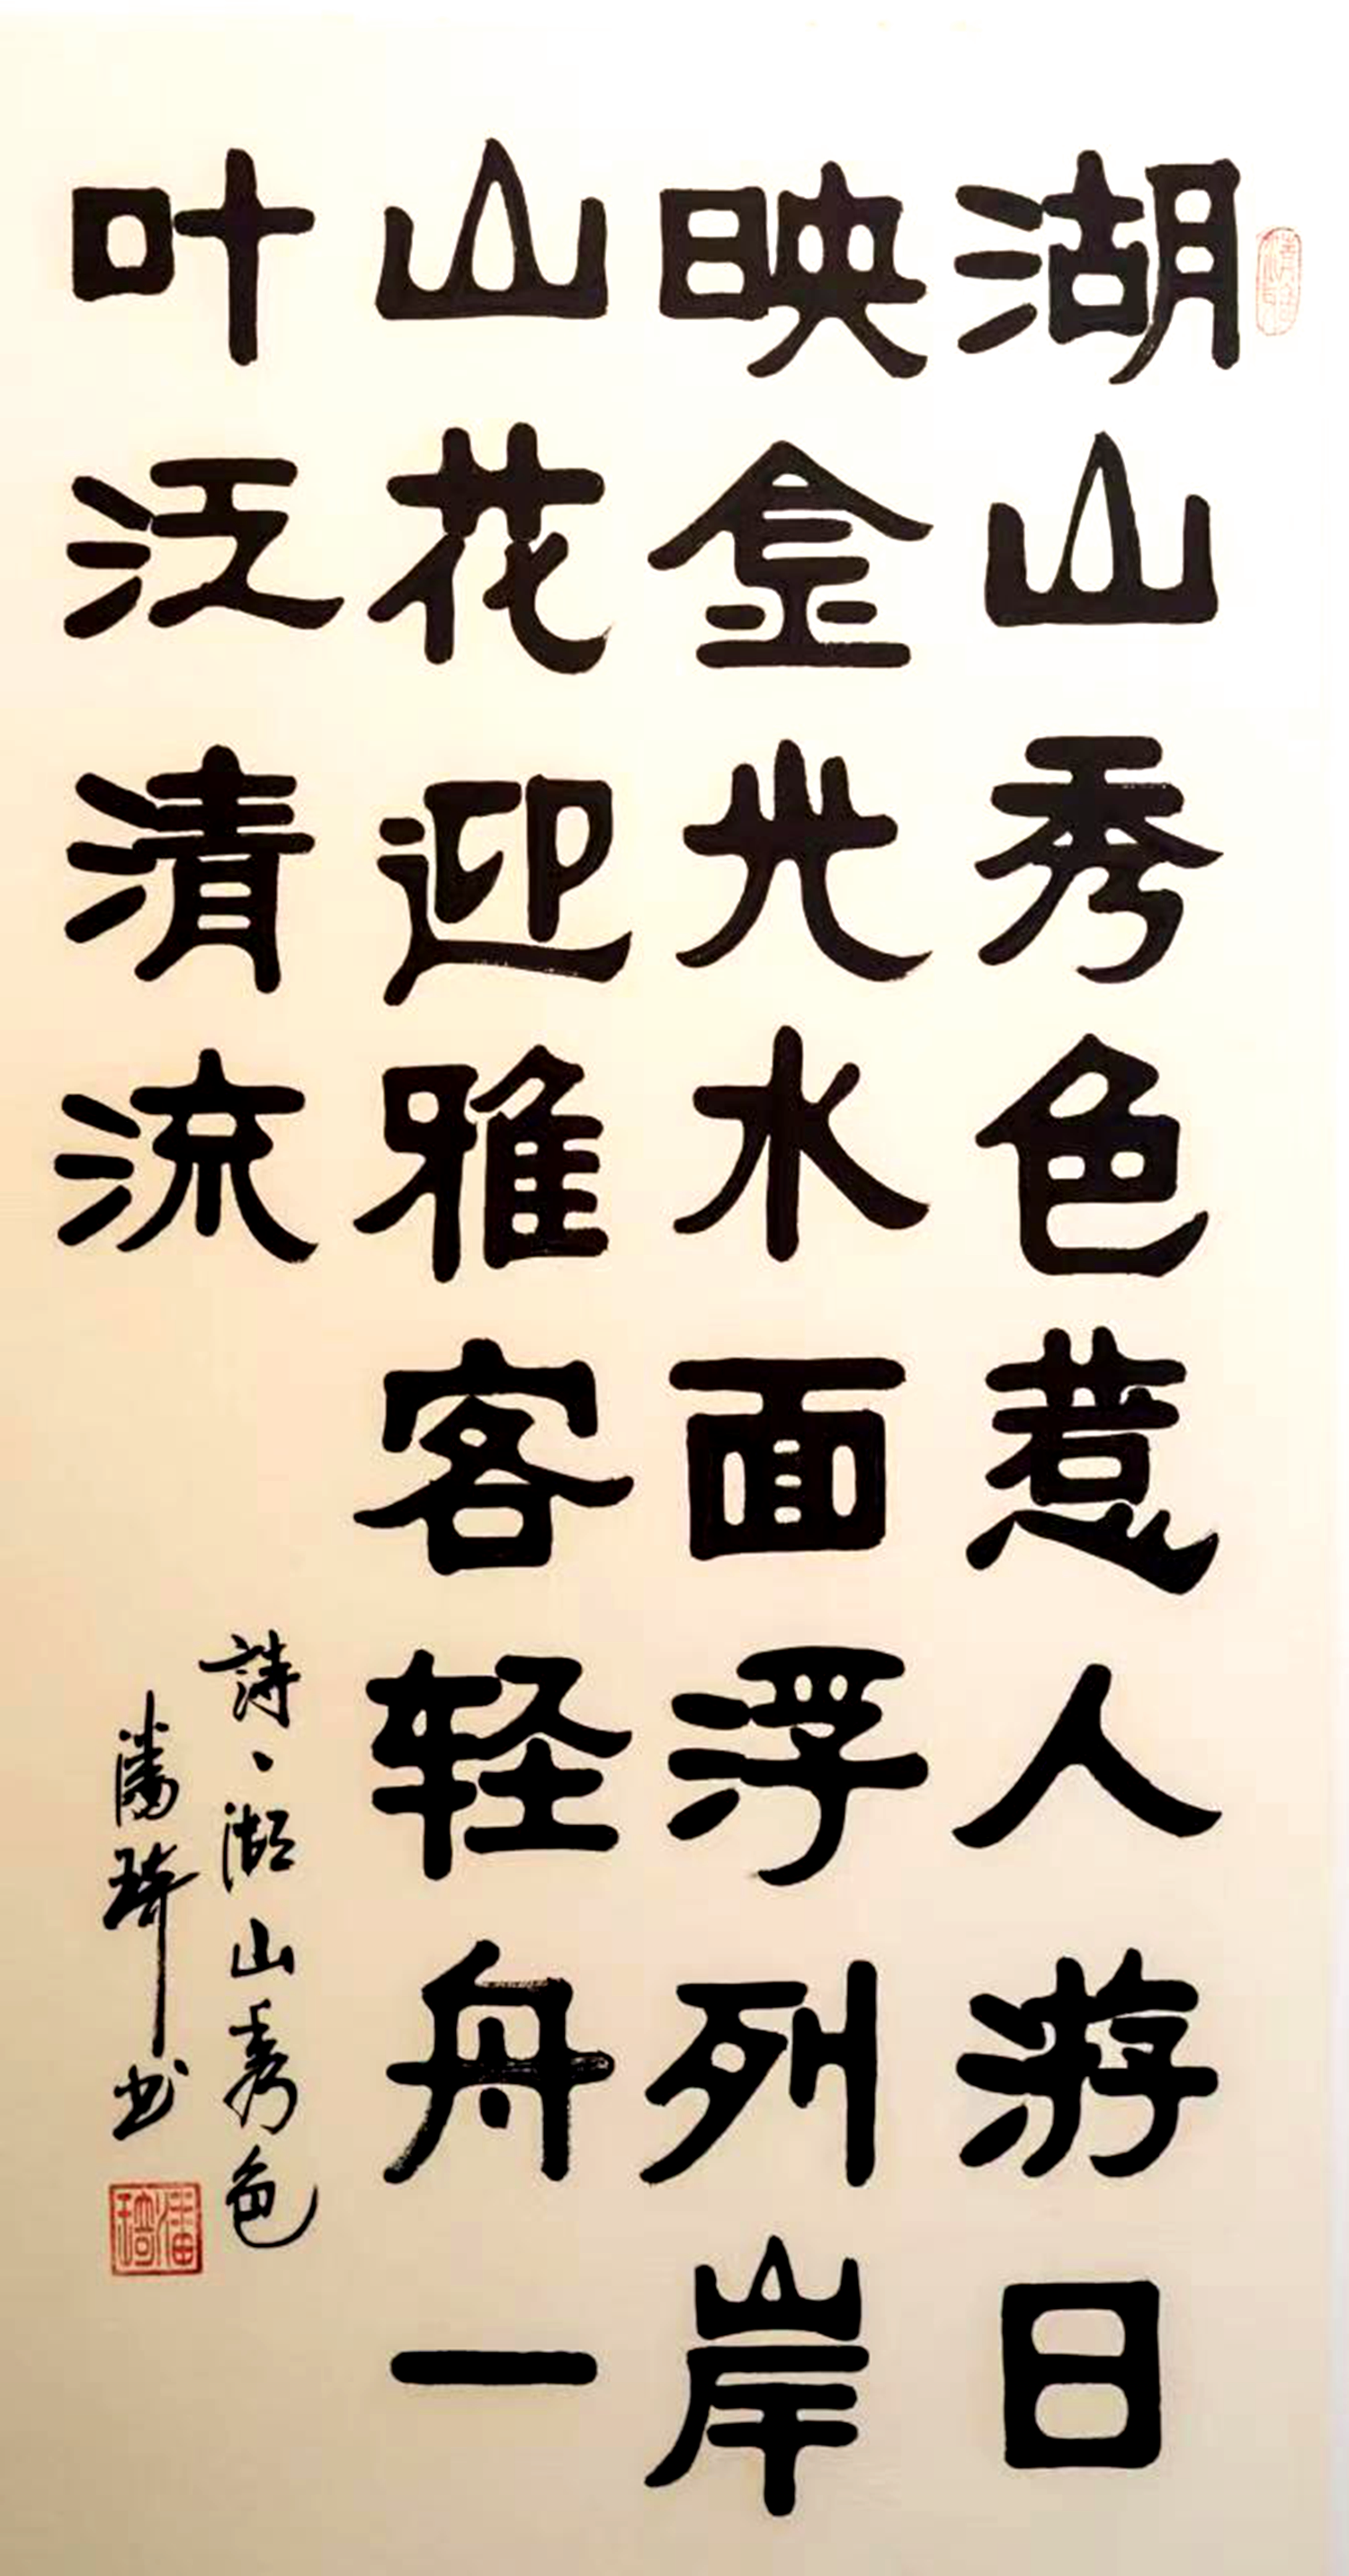 湖山秀色惹人游日
映金光水面浮列岸
山花迎雅客轻舟一
叶泛清流
詩、湖山秀色
潘琦书
潘琦